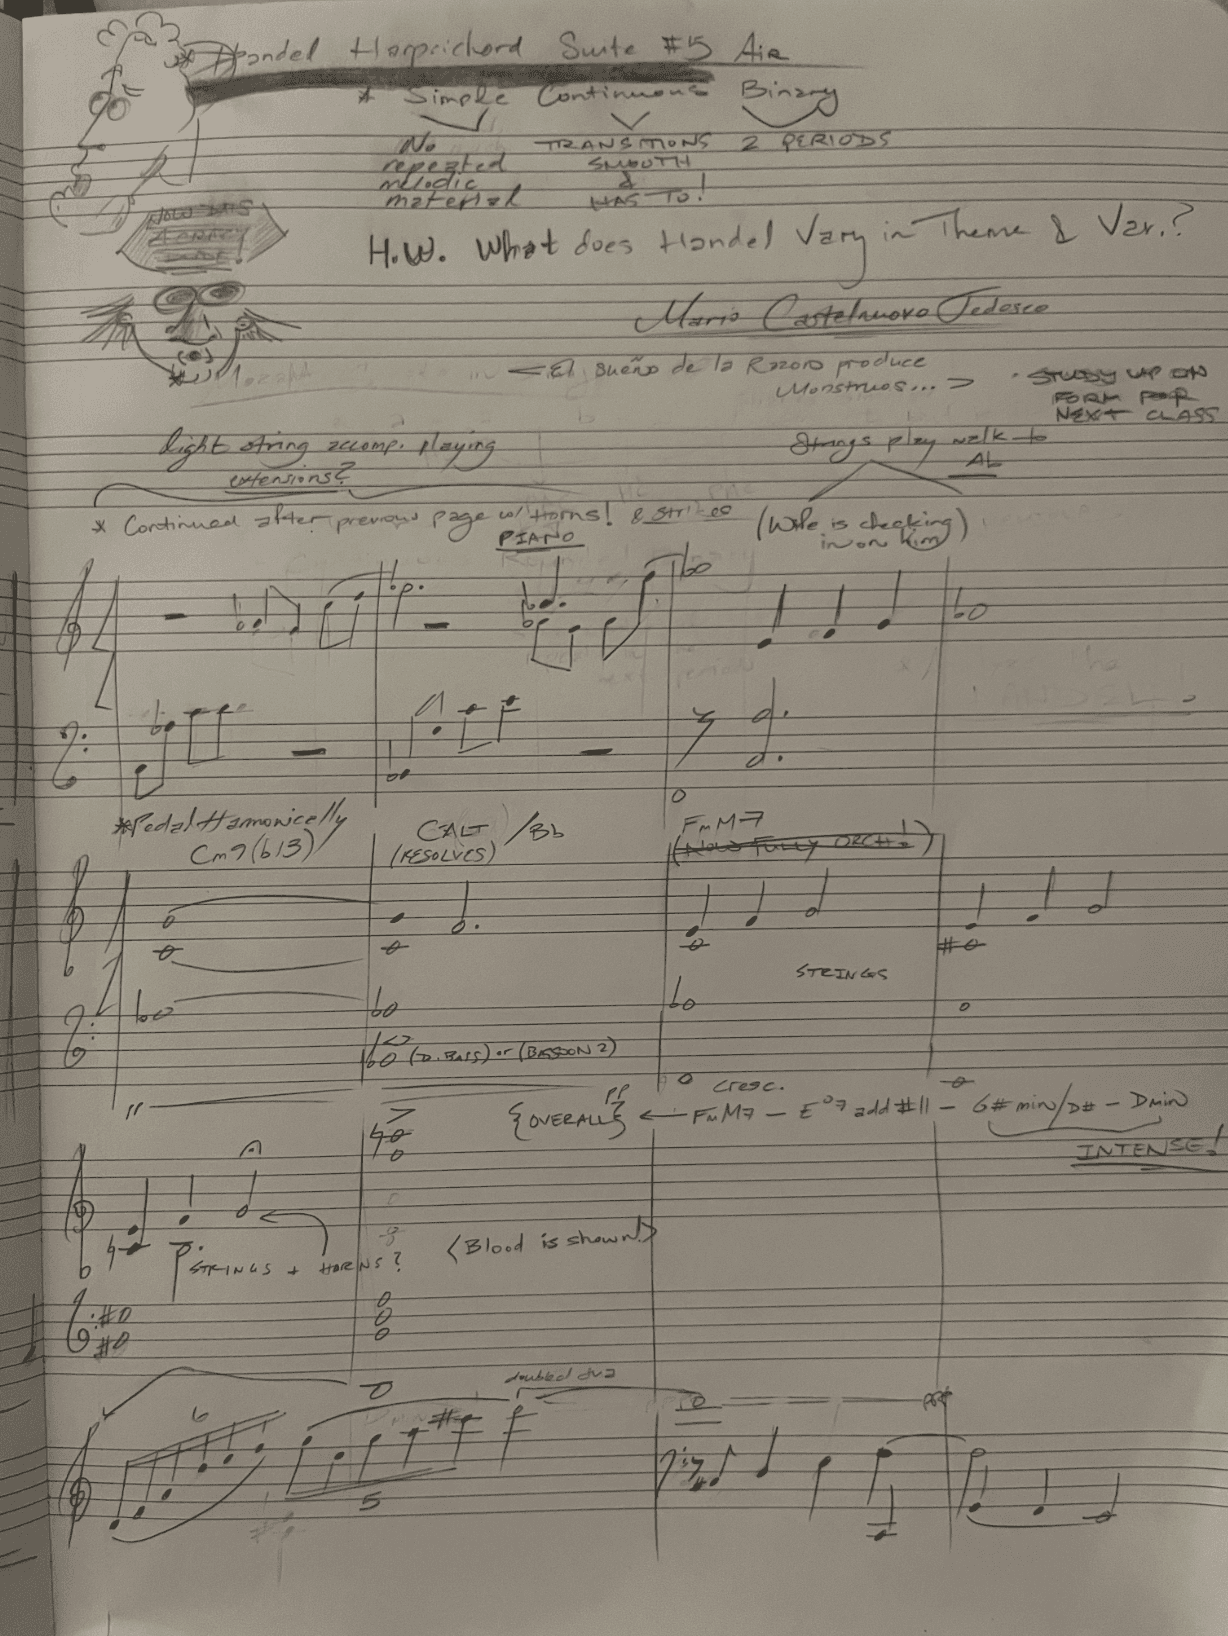 * Handel Harpsichord Suite #5 Air
* Simple Continuous Binary
No repeated melodic material
TRANSITIONS SMOOTH & HAS TO!
2 PERIODS
NOW THIS
H.W. What does Handel Vary in Theme & Var.?
Mario Castelnuovo Tedesco
<El sueño de la Razoro produce
Monstruos...>
· STUDY UP ON
FORM FOR
NEXT CLASS
light string accomp. playing
extensions?
Strings play walk to
Ab
* Continued after previous page w/ Horns! & strikes
PIANO
(Wife is checking
in on him)
*Pedal Harmonically
Cm9(b13)
CALT /Bb
(RESOLVES)
FmM7
(NOW FULLY ORCH!)
STRINGS
(D.BASS) or (BASSOON 2)
pp
cresc.
{OVERALL} ← FmM7 – E°7 add #11 – G#min/D# – Dmin
INTENSE!
STRINGS + HORNS?
(Blood is shown!)
doubled 8va
6
5